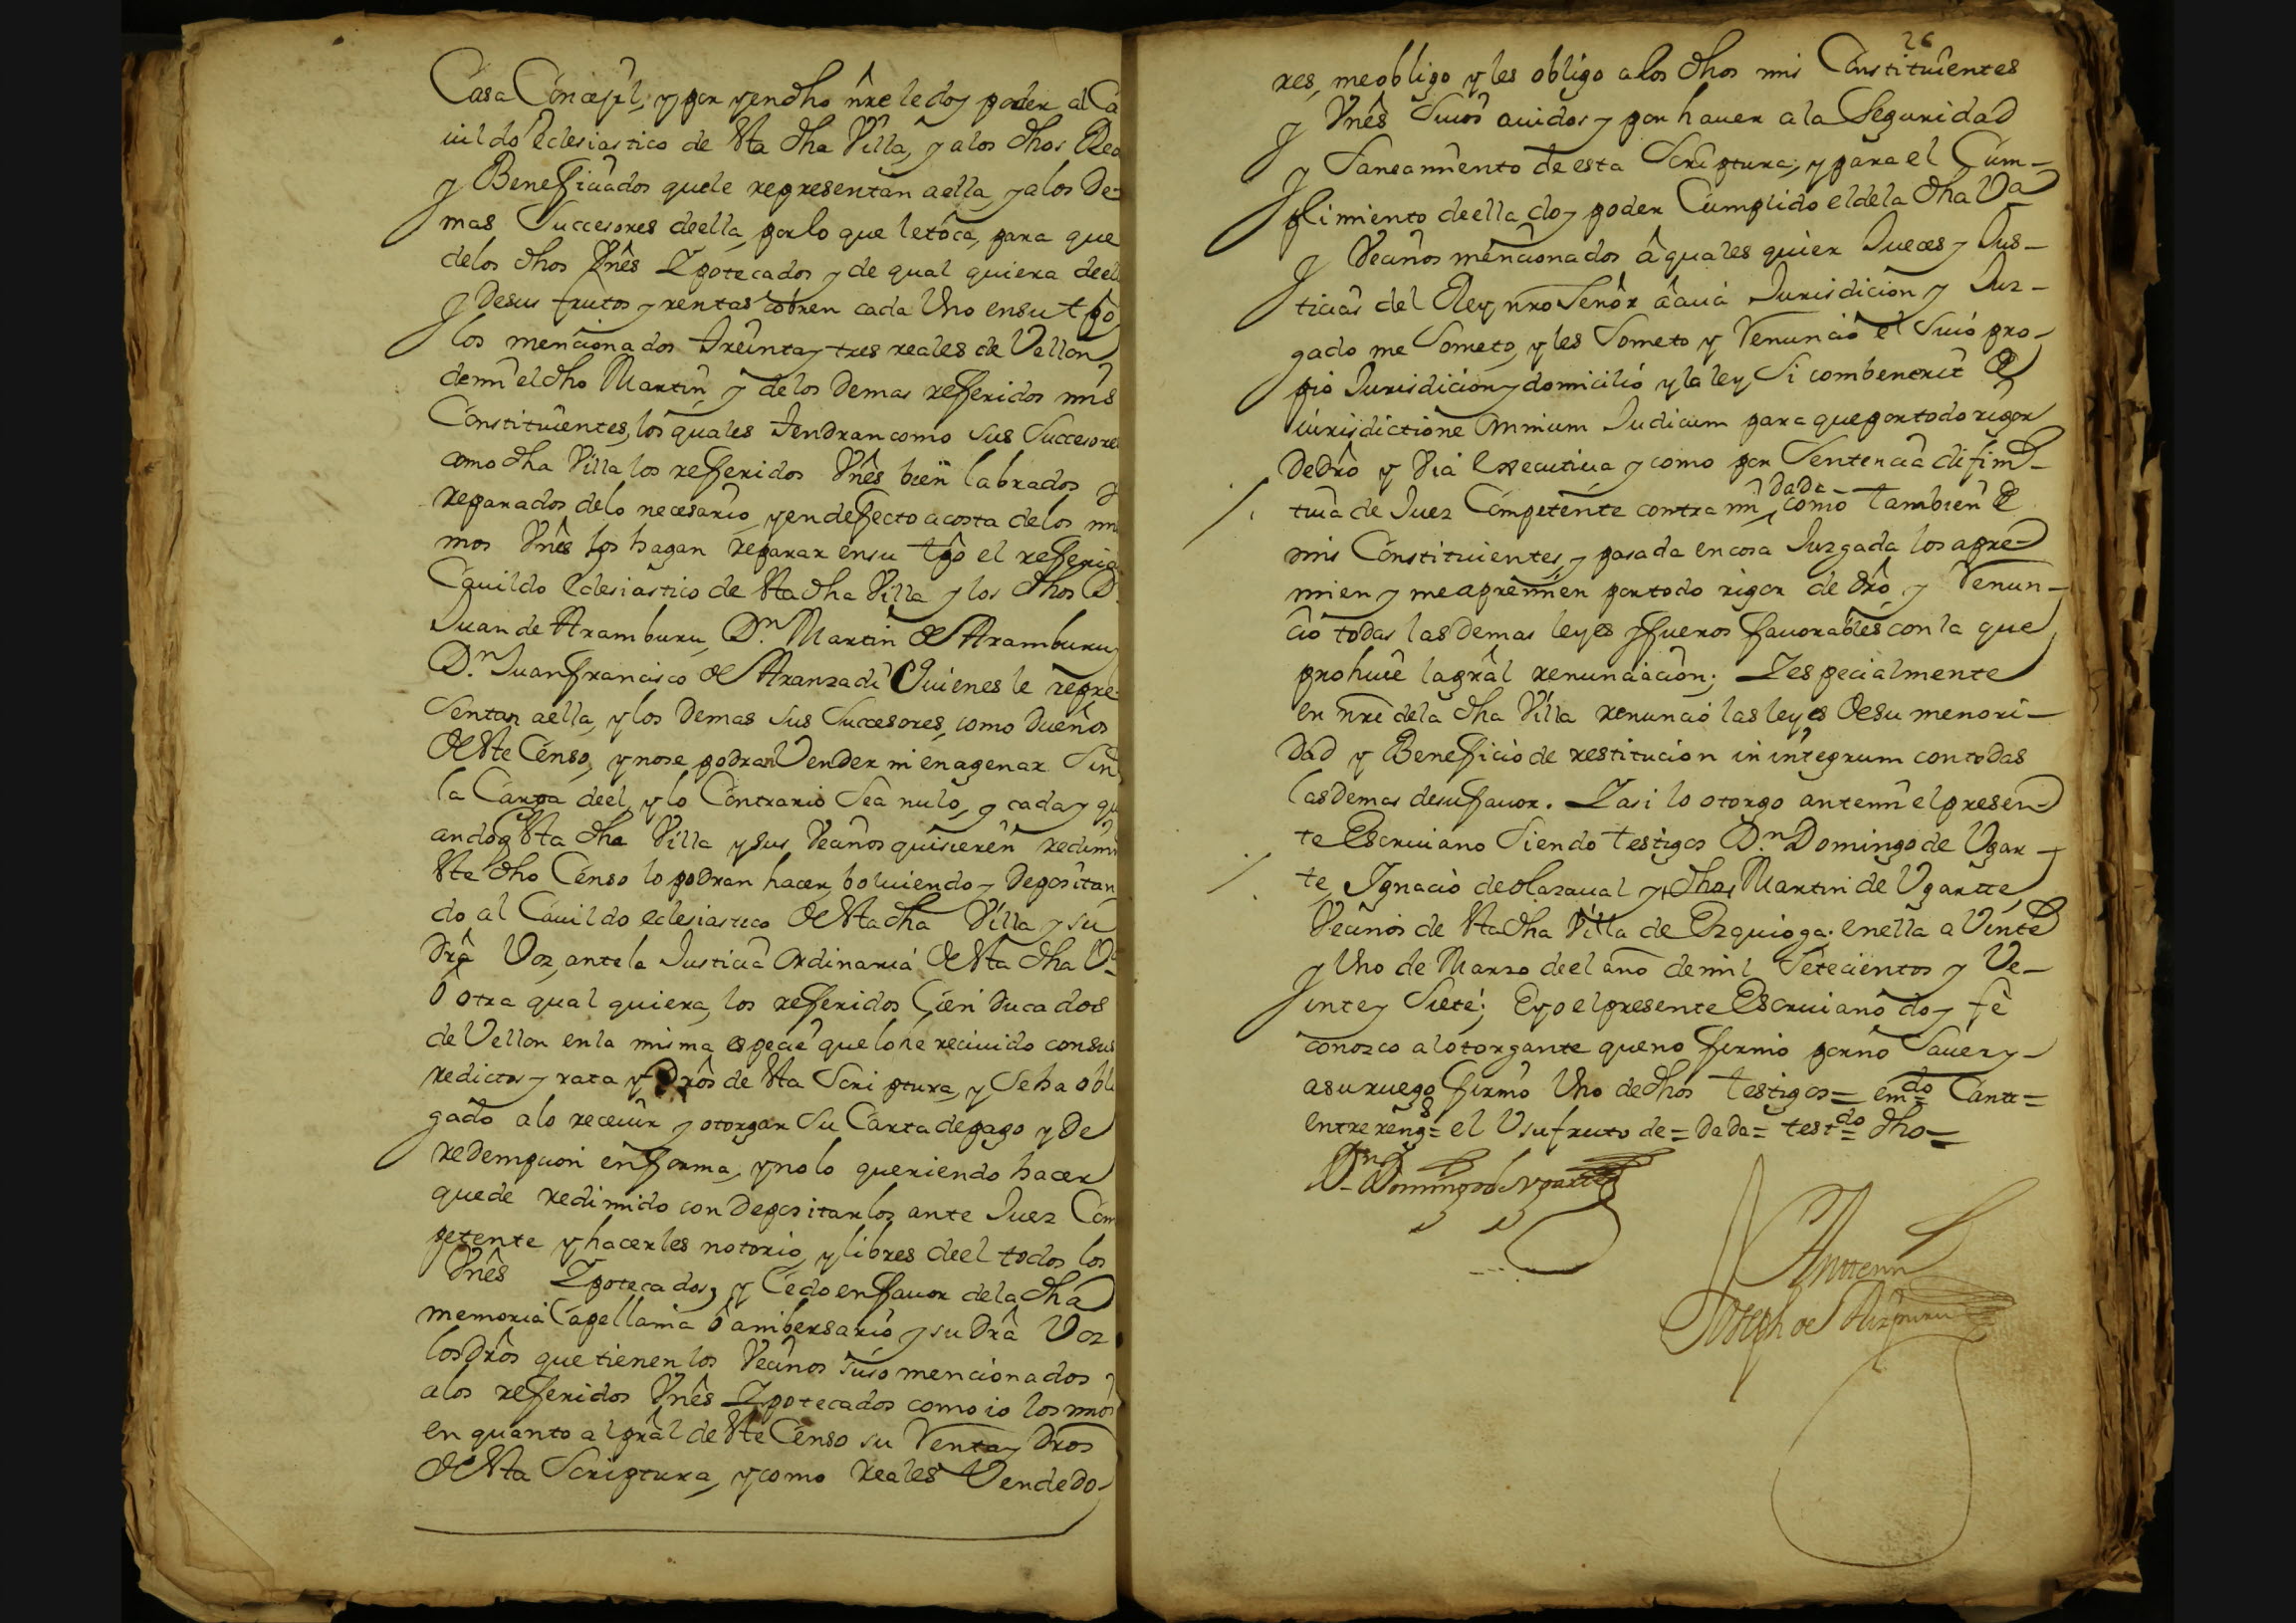 Casa Concejil, y por y en dho nre le doy poder al Ca
uildo eclesiastico de Sta dha Villa, y alos dhos Rec
y Beneficiados que le representan aella, y alos De-
mas Succesores deella, por lo que le toca, para que
delos dhos Vnês Ypotecados y de qual quiera deel
y Desus frutos y rentas cobren cada Vno ensu tpo
los mencionados treinta y tres reales de Vellon
demi el dho Martin, y delos Demas refferidos mis
Constituientes, los quales tendran como sus Succesores
como dha Villa los refferidos Vnês bien labrados y
reparados delo necesario, y en deffecto acosta delos mis
mos Vnês los hagan reparar ensu tpo el refferido
Cauildo eclesiastico de Sta dha Villa y los dhos D.
Juan de Aramburu, Dn. Martin de Aramburu,
Dn. Juan francisco de Aranzadi Quienes le repre-
sentan aella, y los Demas sus Succesores, como Dueños
de Ste Censo, y nose podran Vender ni enagenar Sin
la Carga deel, y lo Contrario Sea nulo, y cada y qu
ando q Sta dha Villa y sus Vecinos quisieren redimir
Ste dho Censo lo podran hacer, boluiendo y Depositan
do al Cauildo eclesiastico de Sta dha Villa y su
Drâ Voz, ante la Justicia Ordinaria de Sta dha Va
ô otra qual quiera, los refferidos Cien Ducados
de Vellon en la misma especie que lo he reciuido con sus
redictos y rata y Drôs de Sta Scriptura, y Se ha obli
gado alo receuir y otorgar Su Carta de pago y De
redempcion en fforma, y no lo queriendo hacer
quede redimido con Depositarlos ante Juez Com
petente y hacerles notorio, y libres deel todos los
Vnês Ypotecados, y Cedo en ffauor dela dha
memoria Capellania ô anibersario y su Drâ Voz
los Drôs que tienen los Vecinos suso mencionados
alos refferidos Vnês Ypotecados como io los mios
en quanto al prâl de Ste Censo su Venta y Drôs
de Sta Scriptura, y como reales Vendedo-
26
res, me obligo y les obligo alos dhos mis Constituientes
y Vnês Suios auidos y por hauer ala Seguridad
y Saneamiento de esta Scriptura; y para el Cum-
plimiento deella doy poder Cumplido el dela dha Va
y Vecinos mencionados â quales quier Jueces y Jus-
ticias del Rey nro Señor â cuia Jurisdicion y Juz-
gado me Someto, y les Someto y renuncio el Suio pro-
pio Jurisdicion y domicilio y la ley Si combenerit de
iurisdictione omnium Judicum para que por todo rigor
De Drô y Via executiua y como por Sentencia difini-
dada
tiua de Juez Competente contra mi, como tambien de
mis Constituientes, y pasada en cosa Juzgada los apre-
mien y me apremien por todo rigor de drô, y renun-
cio todas las Demas leyes y fueros ffauorables con la que
prohiue la grâl renunciacion; Y especialmente
en nre dela dha Villa renuncio las leyes de su menori-
dad y Beneficio de restitucion in integrum con todas
las Demas desu fauor. Y asi lo otorgo ante mi el presen-
te Escriuano Siendo testigos Dn. Domingo de Ugar-
te, Ignacio de olazaual y dhos Martin de Ugartte
Vecinos de Sta dha Villa de Ezquioga, en ella a Vinte
y Vno de Marzo deel año de mil Setecientos y Ve-
inte y Siete; E yo el presente Escriuano doy fê
conozco al otorgante que no firmo por no Sauer y
a su ruego firmo Vno de dhos testigos = emdo Cantt =
entre rengs = el Vsufruto de = Dada = testdo dho =
Dn Domingo de Vgarte
Antemi
Joseph de Aizpuru